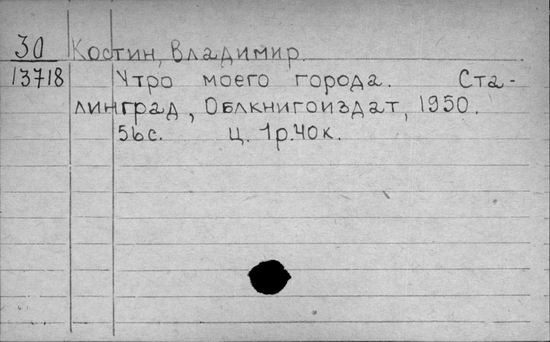 30 Костин, Владимир.
13718 Утро моего города. Ста-
линград, Облкнигоиздат, 1950.
56с. Ц. 1р.40к.